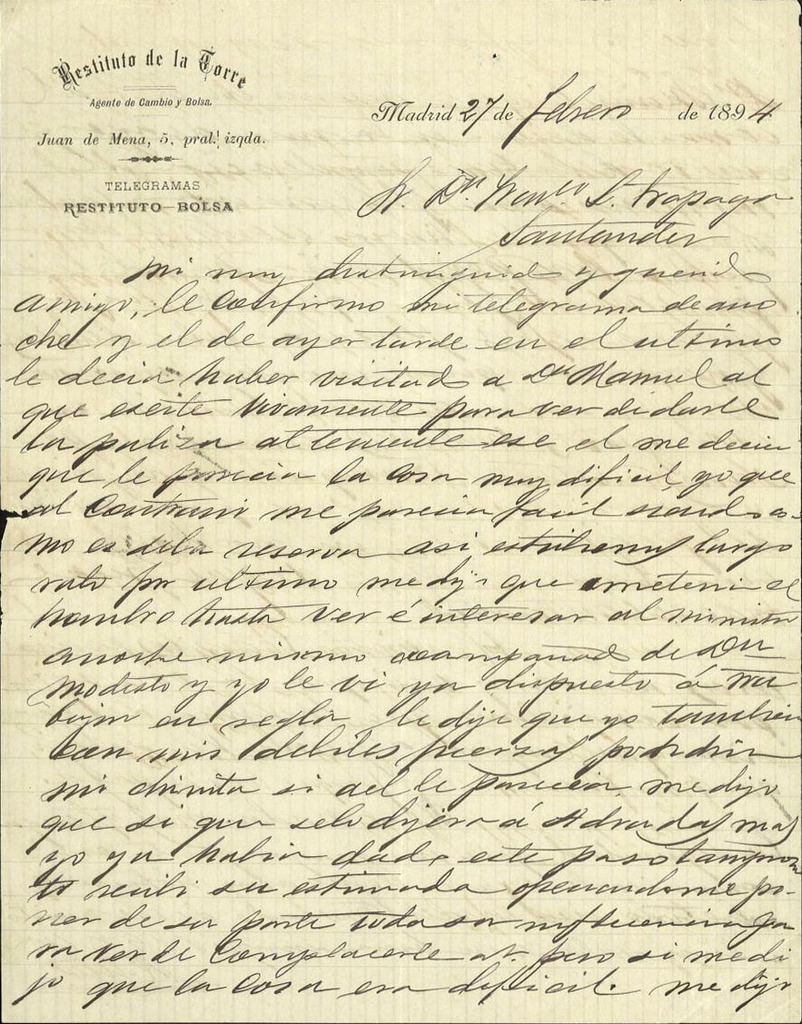 Restituto de la Torre
Agente de Cambio y Bolsa.
Juan de Mena, 5, pral. izqda.
TELEGRAMAS
RESTITUTO-BOLSA
Madrid 27 de febrero de 1894
Sr. Dn. L. Trapaga
Santander
Mi muy distinguido y querido
amigo, le confirmo mi telegrama de ano
che y el de ayer tarde en el ultimo
le decia haber visitado a Dn Manuel al
que escite vivamente para ver di darle
la paliza al teniente ese el me decia
que le parecia la cosa muy dificil yo que
al contrario me parecia facil siendo co-
mo es de la reserva asi estubemos largo
rato por ultimo me dijo que meteria el
hombro hasta ver é interesar al ministro
anoche mismo acompañado de Dn
Modesto y yo le vi ya dispuesto á tra
bajar en regla, le dije que yo tambien
con mis debiles fuerzas pondria
mi chinita si a el le parecia, me dijo
que si que selo dijera á Adradas mas
yo ya habia dado este paso
recibi su estimada po-
ner de su parte toda su influencia pa
ra ver de complacerle a V. pero si me di
jo que la cosa era dificil. me dijo